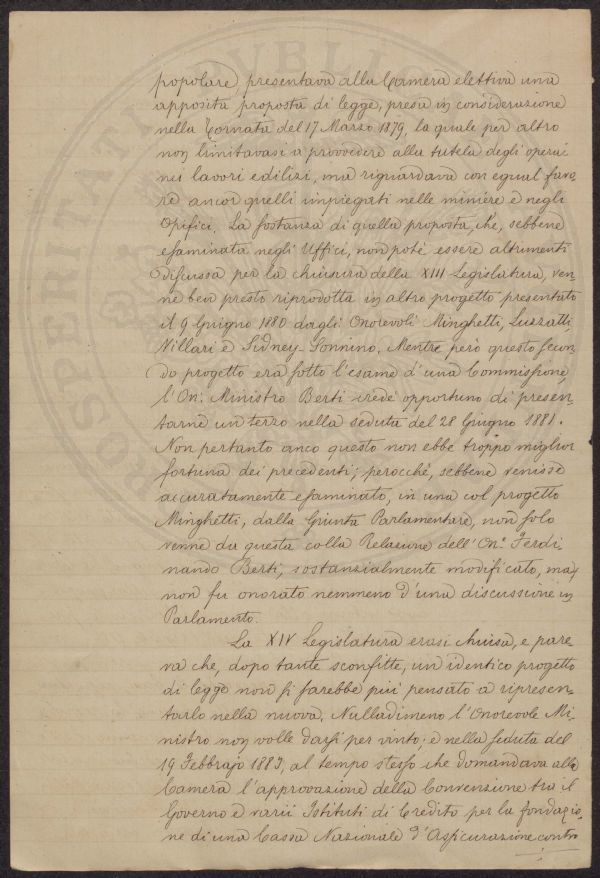 popolare presentava alla Camera elettiva una
apposita proposta di legge, presa in considerazione
nella Tornata del 17 Marzo 1879, la quale per altro
non limitavasi a provvedere alla tutela degli operai
nei lavori edilizi, ma riguardava con egual favo-
re ancor quelli impiegati nelle miniere e negli
Opifici. La sostanza di quella proposta, che, sebbene
esaminata negli Uffici, non potè essere altrimenti
discussa per la chiusura della XIII Legislatura, ven-
ne ben presto riprodotta in altro progetto presentato
il 9 Giugno 1880 dagli Onorevoli Minghetti, Luzzatti,
Villari e Sidney-Sonnino. Mentre però questo secon-
do progetto era sotto l'esame d'una Commissione,
l'On: Ministro Berti credè opportuno di presen-
tarne un terzo nella seduta del 28 Giugno 1881.
Non pertanto anco questo non ebbe troppo miglior
fortuna dei precedenti; perocchè, sebbene venisse
accuratamente esaminato, in una col progetto
Minghetti, dalla Giunta Parlamentare, non solo
venne da questa colla Relazione dell'On.e Ferdi-
nando Berti, sostanzialmente modificato, ma
non fu onorato nemmeno d'una discussione in
Parlamento.
La XIV Legislatura erasi chiusa, e pare-
va che, dopo tante sconfitte, un identico progetto
di legge non si sarebbe più pensato a ripresen-
tarlo nella nuova. Nulladimeno l'Onorevole Mi-
nistro non volle darsi per vinto; e nella seduta del
19 Febbrajo 1883, al tempo stesso che domandava alla
Camera l'approvazione della Convenzione tra il
Governo e varii Istituti di Credito per la fondazio-
ne di una Cassa Nazionale d'Assicurazione contro
PROSPERITATI PVBLICAE